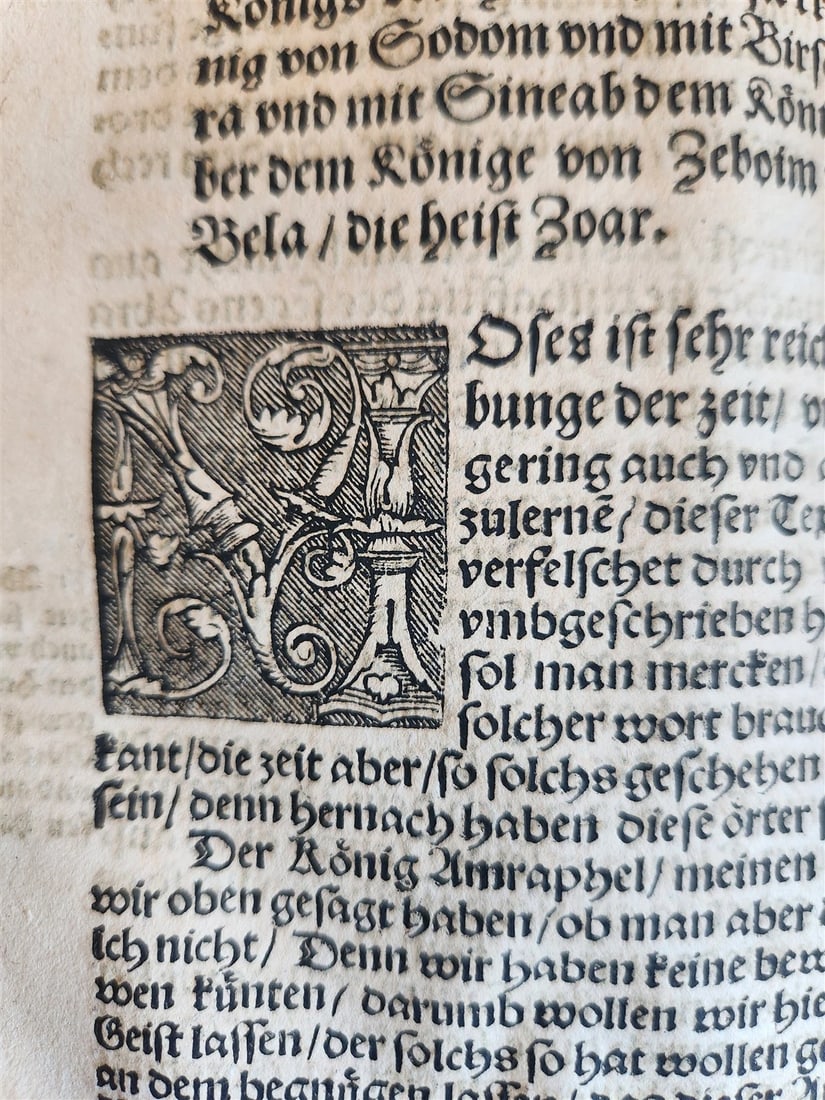 nig von Sodom vnd mit Birſ
ra vnd mit Sineab dem Kön
ber dem Könige von Zeboim
Bela / die heiſt Zoar.
MOſes iſt ſehr reic
bunge der zeit / v
gering auch vnd
zulernē / dieſer Tex
verfelſchet durch
vmbgeſchrieben h
ſol man mercken /
ſolcher wort brauc
kant / die zeit aber / ſo ſolchs geſchehen
ſein / denn hernach haben dieſe örter
Der König Amraphel / meinen
wir oben geſagt haben / ob man aber
ich nicht / Denn wir haben keine bew
wen künten / darumb wollen wir hie
Geiſt laſſen / der ſolchs ſo hat wollen ge
an dem begnügen laſſen /